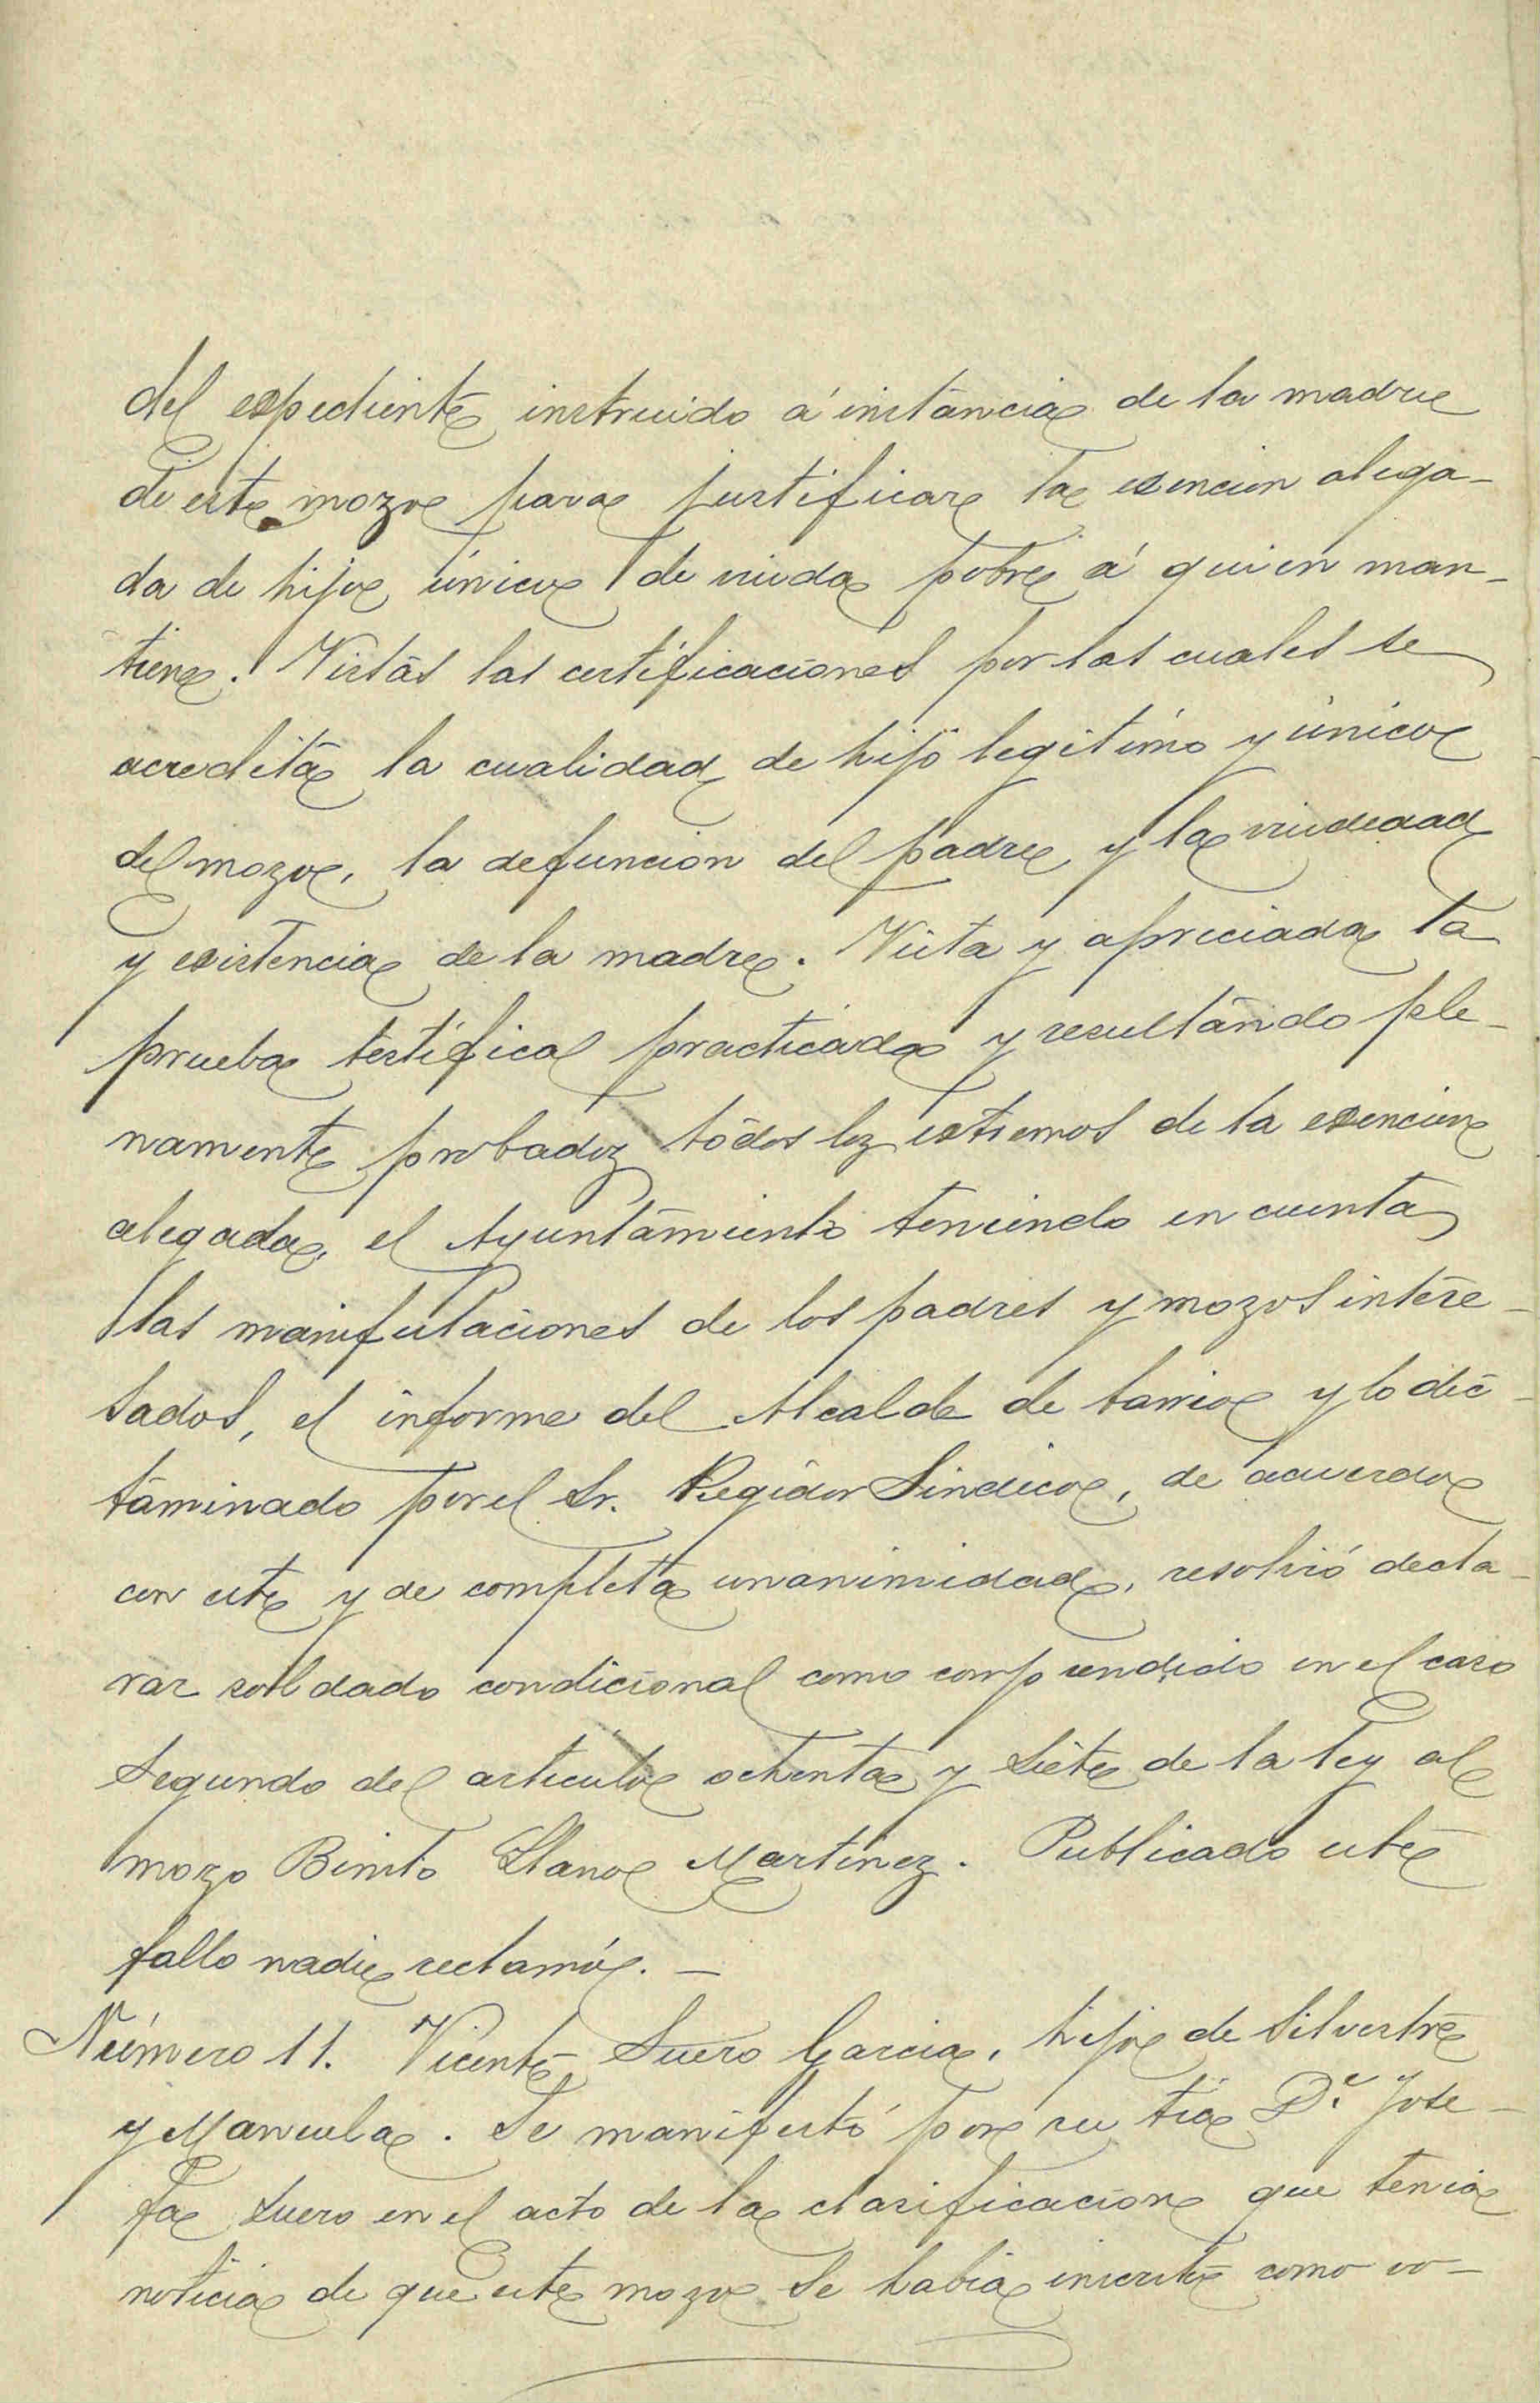 del espediente instruido á instancia de la madre
de este mozo para justificar la esencion alega-
da de hijo único de viuda pobre á quien man-
tiene. Vistas las certificaciones por las cuales se
acredita la cualidad de hijo legitimo y único
del mozo, la defuncion del padre, y la viudedad
y existencia de la madre. Vista y apreciada la
prueba testifical practicada y resultando ple-
namente probados todos los extremos de la esencion
alegada, el Ayuntamiento teniendo en cuenta
las manifestaciones de los padres y mozos intere-
sados, el informe del Alcalde de barrio y lo dic-
taminado por el Sr. Regidor Sindico, de acuerdo
con este y de completa unanimidad, resolvió decla-
rar soldado condicional como comprendido en el caso
segundo del articulo ochenta y siete de la ley al
mozo Benito Llano Martinez. Publicado este
fallo nadie reclamó. —
Número 11. Vicente Suero Garcia, hijo de Silvestre
y Manuela. Se manifestó por su tia Dª. Jose-
fa Suero en el acto de la clasificacion que tenia
noticia de que este mozo se habia inscrito como vo-